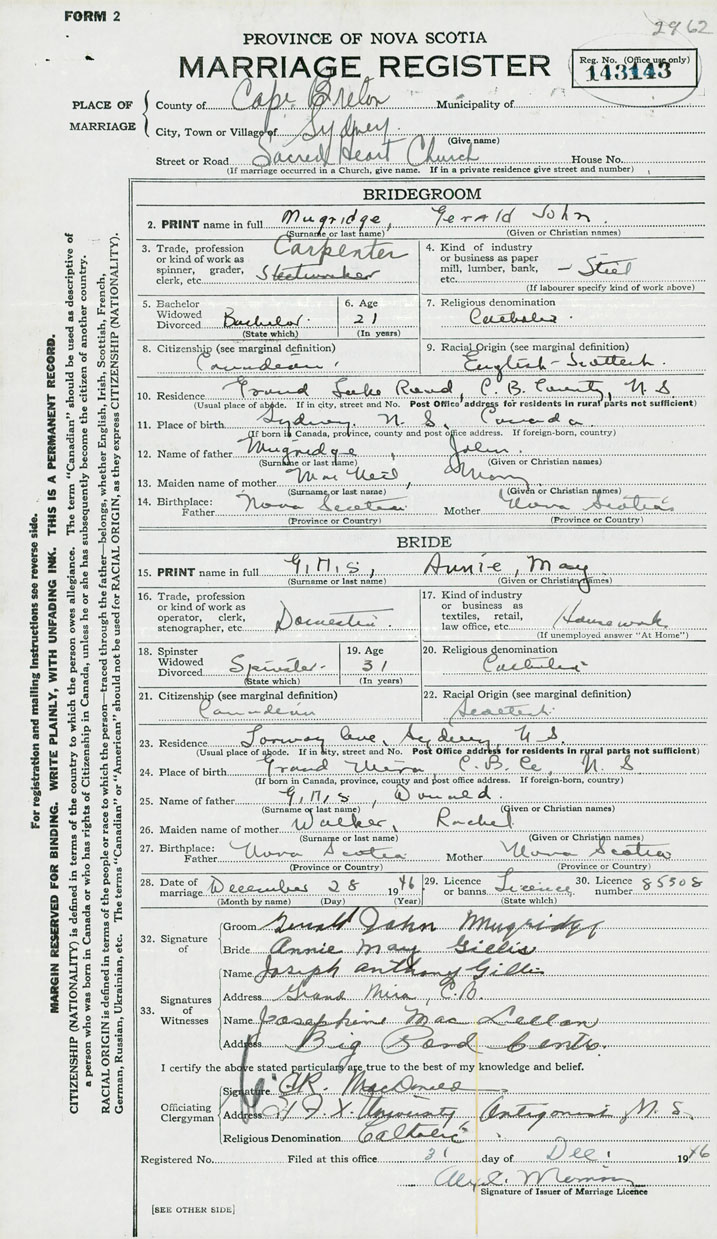 FORM 2
2962
PROVINCE OF NOVA SCOTIA
MARRIAGE REGISTER
Reg. No. (Office use only)
143143
PLACE OF MARRIAGE
County of Cape Breton Municipality of
City, Town or Village of Sydney
(Give name)
Street or Road Sacred Heart Church House No.
(If marriage occurred in a Church, give name. If in a private residence give street and number)
BRIDEGROOM
2. PRINT name in full Mugridge, Gerald John
(Surname or last name) (Given or Christian names)
3. Trade, profession or kind of work as spinner, grader, clerk, etc. Carpenter Steelworker
4. Kind of industry or business as paper mill, lumber, bank, etc. - Steel
(If labourer specify kind of work above)
5. Bachelor Widowed Divorced Bachelor
(State which)
6. Age 21
(In years)
7. Religious denomination Catholic
8. Citizenship (see marginal definition) Canadian
9. Racial Origin (see marginal definition) English-Scottish
10. Residence Grand Lake Road, C.B. County, N S
(Usual place of abode. If in city, street and No. Post Office address for residents in rural parts not sufficient)
11. Place of birth Sydney N. S. Canada
(If born in Canada, province, county and post office address. If foreign-born, country)
12. Name of father Mugridge, John
(Surname or last name) (Given or Christian names)
13. Maiden name of mother MacNeil, Mary
(Surname or last name) (Given or Christian names)
14. Birthplace: Father Nova Scotia Mother Nova Scotia
(Province or Country) (Province or Country)
BRIDE
15. PRINT name in full Annie, May
(Surname or last name) (Given or Christian names)
16. Trade, profession or kind of work as operator, clerk, stenographer, etc. Domestic
17. Kind of industry or business as textiles, retail, law office, etc. Housework
(If unemployed answer "At Home")
18. Spinster Widowed Divorced Spinster
(State which)
19. Age 31
(In years)
20. Religious denomination Catholic
21. Citizenship (see marginal definition) Canadian
22. Racial Origin (see marginal definition) Scottish
23. Residence Lorway Ave, Sydney N S.
(Usual place of abode. If in city, street and No. Post Office address for residents in rural parts not sufficient)
24. Place of birth Grand Mira C.B. Co, N S
(If born in Canada, province, county and post office address. If foreign-born, country)
25. Name of father Donald
(Surname or last name) (Given or Christian names)
26. Maiden name of mother Walker, Rachel
(Surname or last name) (Given or Christian names)
27. Birthplace: Father Nova Scotia Mother Nova Scotia
(Province or Country) (Province or Country)
28. Date of marriage December 28 1946
(Month by name) (Day) (Year)
29. Licence or banns Licence
(State which)
30. Licence number 85508
32. Signature of
Groom Gerald John Mugridge
Bride Annie May Gillis
33. Signatures of Witnesses
Name Joseph Anthony Gillis
Address Grand Mira, C.B.
Name Josephine MacLellan
Address Big Pond Centre.
I certify the above stated particulars are true to the best of my knowledge and belief.
Officiating Clergyman
Signature MacDonald
Address St F. X. University Antigonish N. S.
Religious Denomination Catholic
Registered No. Filed at this office 31 day of Dec. 1946
Signature of Issuer of Marriage Licence
[SEE OTHER SIDE]
For registration and mailing instructions see reverse side.
MARGIN RESERVED FOR BINDING. WRITE PLAINLY, WITH UNFADING INK. THIS IS A PERMANENT RECORD.
CITIZENSHIP (NATIONALITY) is defined in terms of the country to which the person owes allegiance. The term "Canadian" should be used as descriptive of
a person who was born in Canada or who has rights of Citizenship in Canada, unless he or she has subsequently become the citizen of another country.
RACIAL ORIGIN is defined in terms of the people or race to which the person—traced through the father—belongs, whether English, Irish, Scottish, French,
German, Russian, Ukrainian, etc. The terms "Canadian" or "American" should not be used for RACIAL ORIGIN, as they express CITIZENSHIP (NATIONALITY).